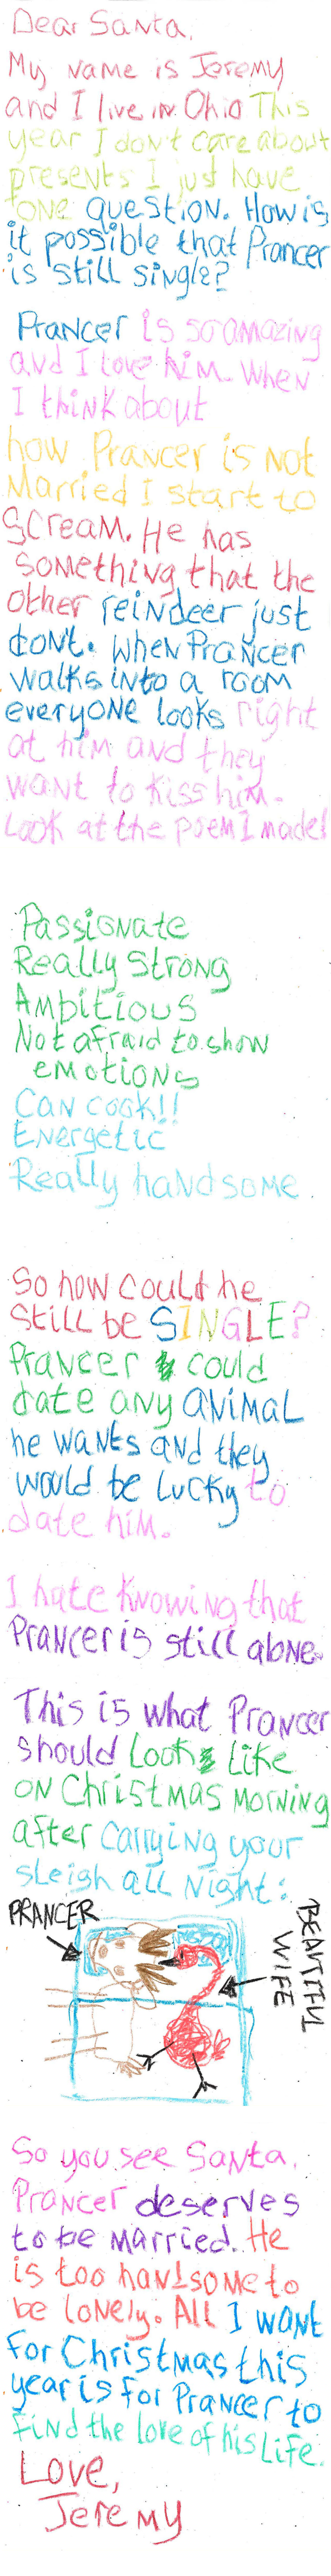 Dear Santa,
My name is Jeremy
and I live in Ohio This
year I don't care about
presents I just have
one question. How is
it possible that Prancer
is still single?
Prancer is so amazing
and I love him. When
I think about
how Prancer is not
Married I start to
scream. He has
something that the
other reindeer just
dont. When Prancer
walks into a room
everyone looks right
at him and they
want to kiss him.
Look at the poem I made!
Passionate
Really Strong
Ambitious
Not afraid to show
emotions
Can cook!!
Energetic
Really handsome
So how could he
still be SINGLE?
Prancer could
date any animal
he wants and they
would be lucky to
date him.
I hate knowing that
Prancer is still alone.
This is what Prancer
should look like
on Christmas morning
after carrying your
sleigh all night:
PRANCER
BEAUTIFUL
WIFE
So you see Santa,
Prancer deserves
to be married. He
is too handsome to
be lonely. All I want
for Christmas this
year is for Prancer to
find the love of his life.
Love,
Jeremy